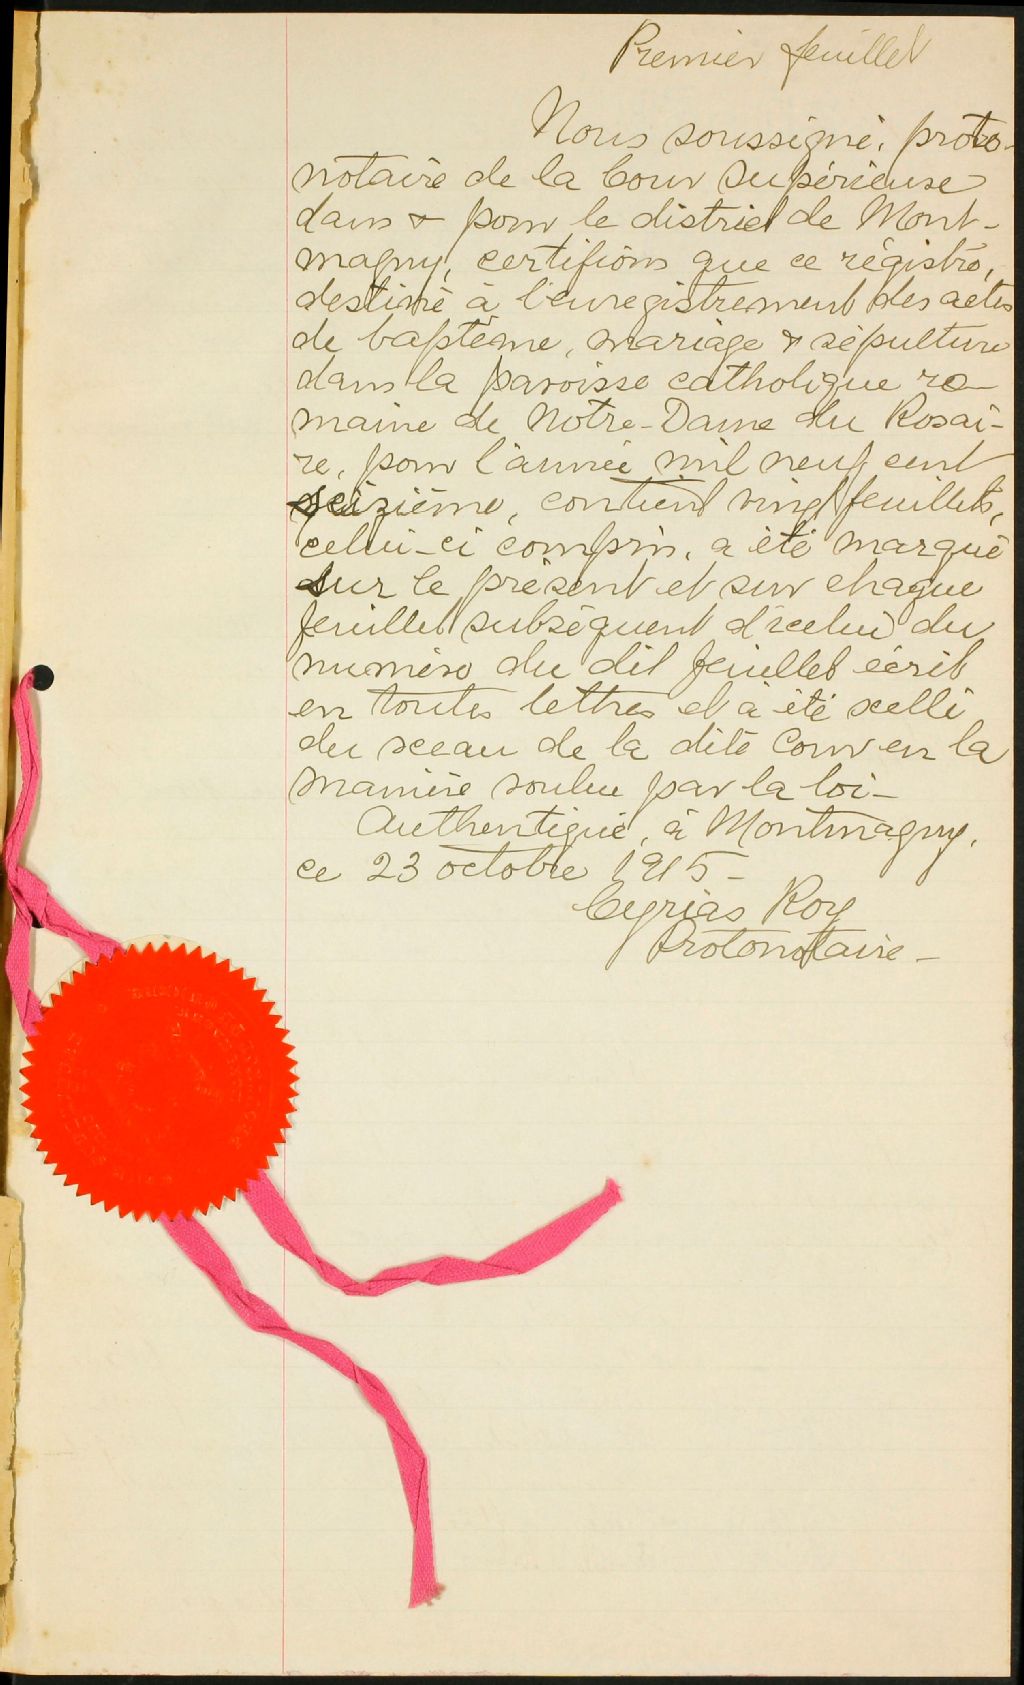 Premier feuillet
Nous soussigné, proto-
notaire de la Cour Supérieuse
dans & pour le district de Mont-
magny, certifions que ce régistre,
destiné à l'enregistrement des actes
de baptême, mariage & sépulture
dans la paroisse catholique ro-
maine de Notre-Dame du Rosai-
re, pour l'année mil neuf cent
seizième, contient vingt feuillets,
celui-ci compris, a été marqué
sur le présent et sur chaque
feuillet subséquent d'icelui du
numéro du dit feuillet écrit
en toutes lettres et a été scellé
du sceau de la dite Cour en la
manière voulue par la loi-
Authentiqué, à Montmagny,
ce 23 octobre 1915-
Cyrias Roy
Protonotaire-